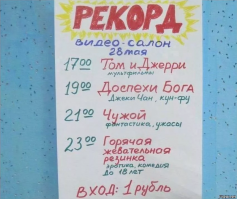 РЕКОРД
ВИДЕО-САЛОН
28 мая
17 00 Том и Джерри
мультфильмы
19 00 Доспехи Бога
Джеки Чан, кун-фу
21 00 Чужой
фантастика, ужасы
23 00 Горячая
жевательная
резинка
эротика, комедия
до 18 лет
ВХОД: 1 рубль